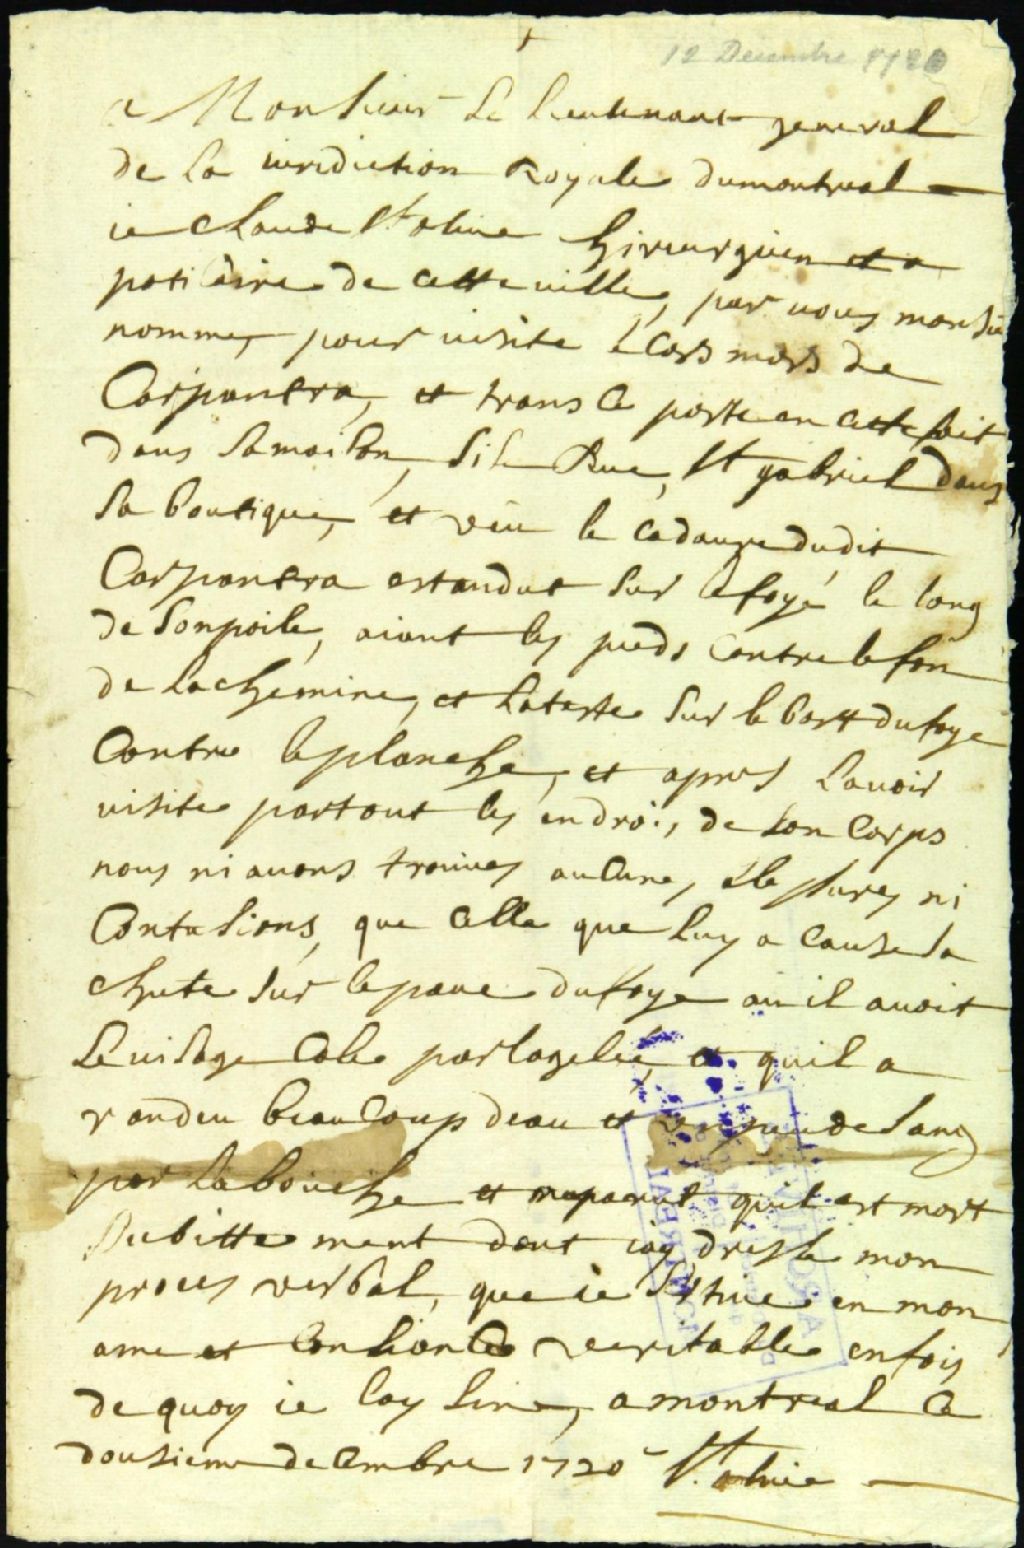 12 Decembre 1720
a Monsieur Le lieutenant general
de La iuridiction Royale dumontreal
ie Claude St olive hirurgien et a
poticaire de cette ville, par vous monsie
nommes pour visite le Cors mors de
Carpantra, et trans ce porte en cette foit
dans Samaison, Sise Rue, St gabriel dans
Sa boutique, et veu le cadavre dudit
Carpantra estandut Sur le foye le long
de Sonpoile, aiant les pieds Contre le fon
de La chemine, et La teste Sur le bort du foye
Contre le planche, et apres L'avoir
visite partout les endrois de Son Corps
nous ni avons trouves aucune, blessures ni
Contusions, que Celle que Luy a Cause Sa
chute Sur le pave du foye ou il avoit
Le visage Cole par la gelee, et quil a
randeu beaucoup deau et un peu de Sang
par La bouche et maparut quil est mort
Subitte ment dont iay dresse mon
proces verbal, que ie Sertiue en mon
ame et Consiance veritable en foy
de quoy ie lay Sine, a montreal Ce
dousieme decembre 1720 St olive
ARCHIVES
MONTREAL